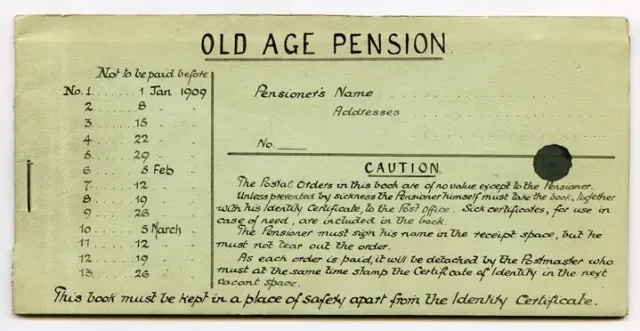 OLD AGE PENSION
Not to be paid before
No. 1 ....... 1 Jan 1909
2 ....... 8 " "
3 ....... 15 " "
4 ....... 22 " "
5 ....... 29 " "
6 ....... 5 Feb "
7 ....... 12 " "
8 ....... 19 " "
9 ....... 26 " "
10 ....... 5 March "
11 ....... 12 " "
12 ....... 19 " "
13 ....... 26 " "
Pensioner's Name
Addresses
No.
CAUTION
The Postal Orders in this book are of no value except to the Pensioner.
Unless prevented by sickness the Pensioner himself must take the book, together
with his Identity Certificate, to the Post Office. Sick certificates, for use in
case of need, are included in the book.
The Pensioner must sign his name in the receipt space, but he
must not tear out the order.
As each order is paid, it will be detached by the Postmaster who
must at the same time stamp the Certificate of Identity in the next
vacant space.
This book must be kept in a place of safety apart from the Identity Certificate.